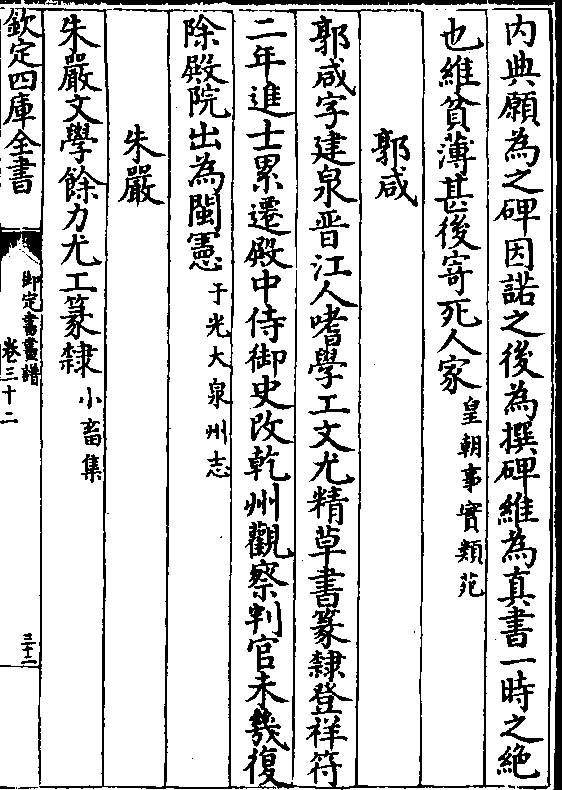 內典願為之碑因諾之後為撰碑維為真書一時之絶
也維貧薄甚後寄死人家皇朝事實類苑
郭咸
郭咸字建泉晉江人嗜學工文尤精草書篆隸登祥符
二年進士累遷殿中侍御史改乾州觀察判官未幾復
除殿院出為閩憲于光大泉州志
朱嚴
朱嚴文學餘力尤工篆隸小畜集
欽定四庫全書
御定書畫譜
卷三十二
三十二